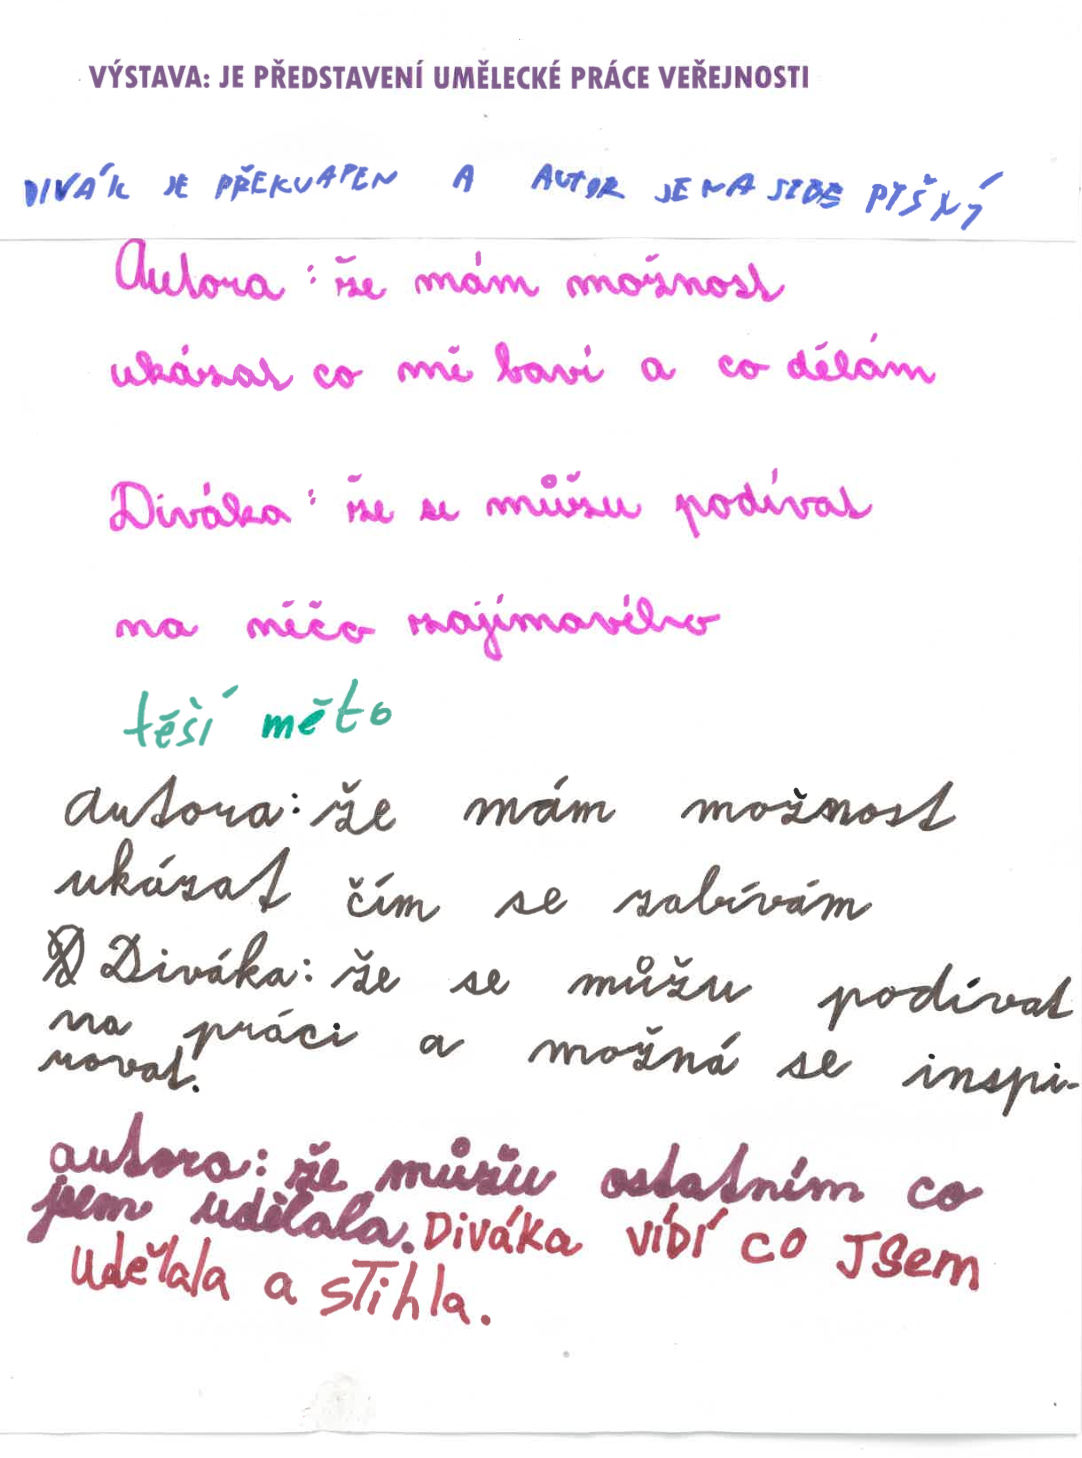 VÝSTAVA: JE PŘEDSTAVENÍ UMĚLECKÉ PRÁCE VEŘEJNOSTI
DIVÁK JE PŘEKVAPEN A AUTOR JE NA SEBE PIŠNÝ
Autora: že mám možnost
ukázat co mě baví a co dělám
Diváka: že se můžu podívat
na něčo zajímavého
těší mě to
autora: že mám možnost
ukázat čím se zabívám
Diváka: že se můžu podívat
na práci a možná se inspi-
rovat.
autora: že můžu ostatním co
jsem udělala. Diváka vidí co JSem
udělala a stihla.